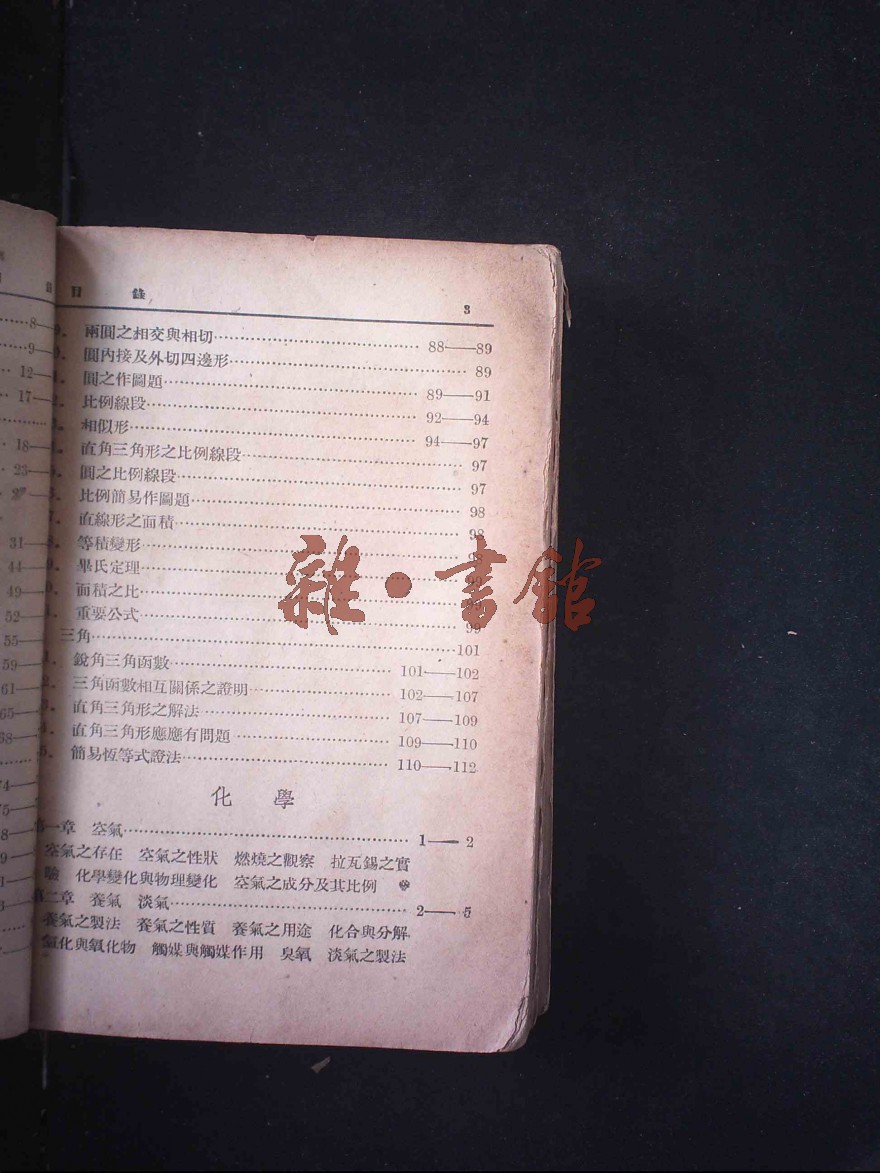 目 錄 3
兩圓之相交與相切 88——89
圓內接及外切四邊形 89
圓之作圖題 89——91
比例線段 92——94
相似形 94——97
直角三角形之比例線段 97
圓之比例線段 97
比例簡易作圖題 98
直線形之面積 98
等積變形 98
畢氏定理 99
面積之比
重要公式 99
三角 101
銳角三角函數 101——102
三角函數相互關係之證明 102——107
直角三角形之解法 107——109
直角三角形應應有問題 109——110
5. 簡易恆等式證法 110——112
化 學
第一章 空氣 1—2
空氣之存在 空氣之性狀 燃燒之觀察 拉瓦錫之實
驗 化學變化與物理變化 空氣之成分及其比例
第二章 養氣 淡氣 2—5
養氣之製法 養氣之性質 養氣之用途 化合與分解
氧化與氧化物 觸媒與觸媒作用 臭氧 淡氣之製法
8—
9—
12—
17—
18—
23—
27—
31—
44—
49—
52—
55—
59—
61—
65—
68—
雜·書館